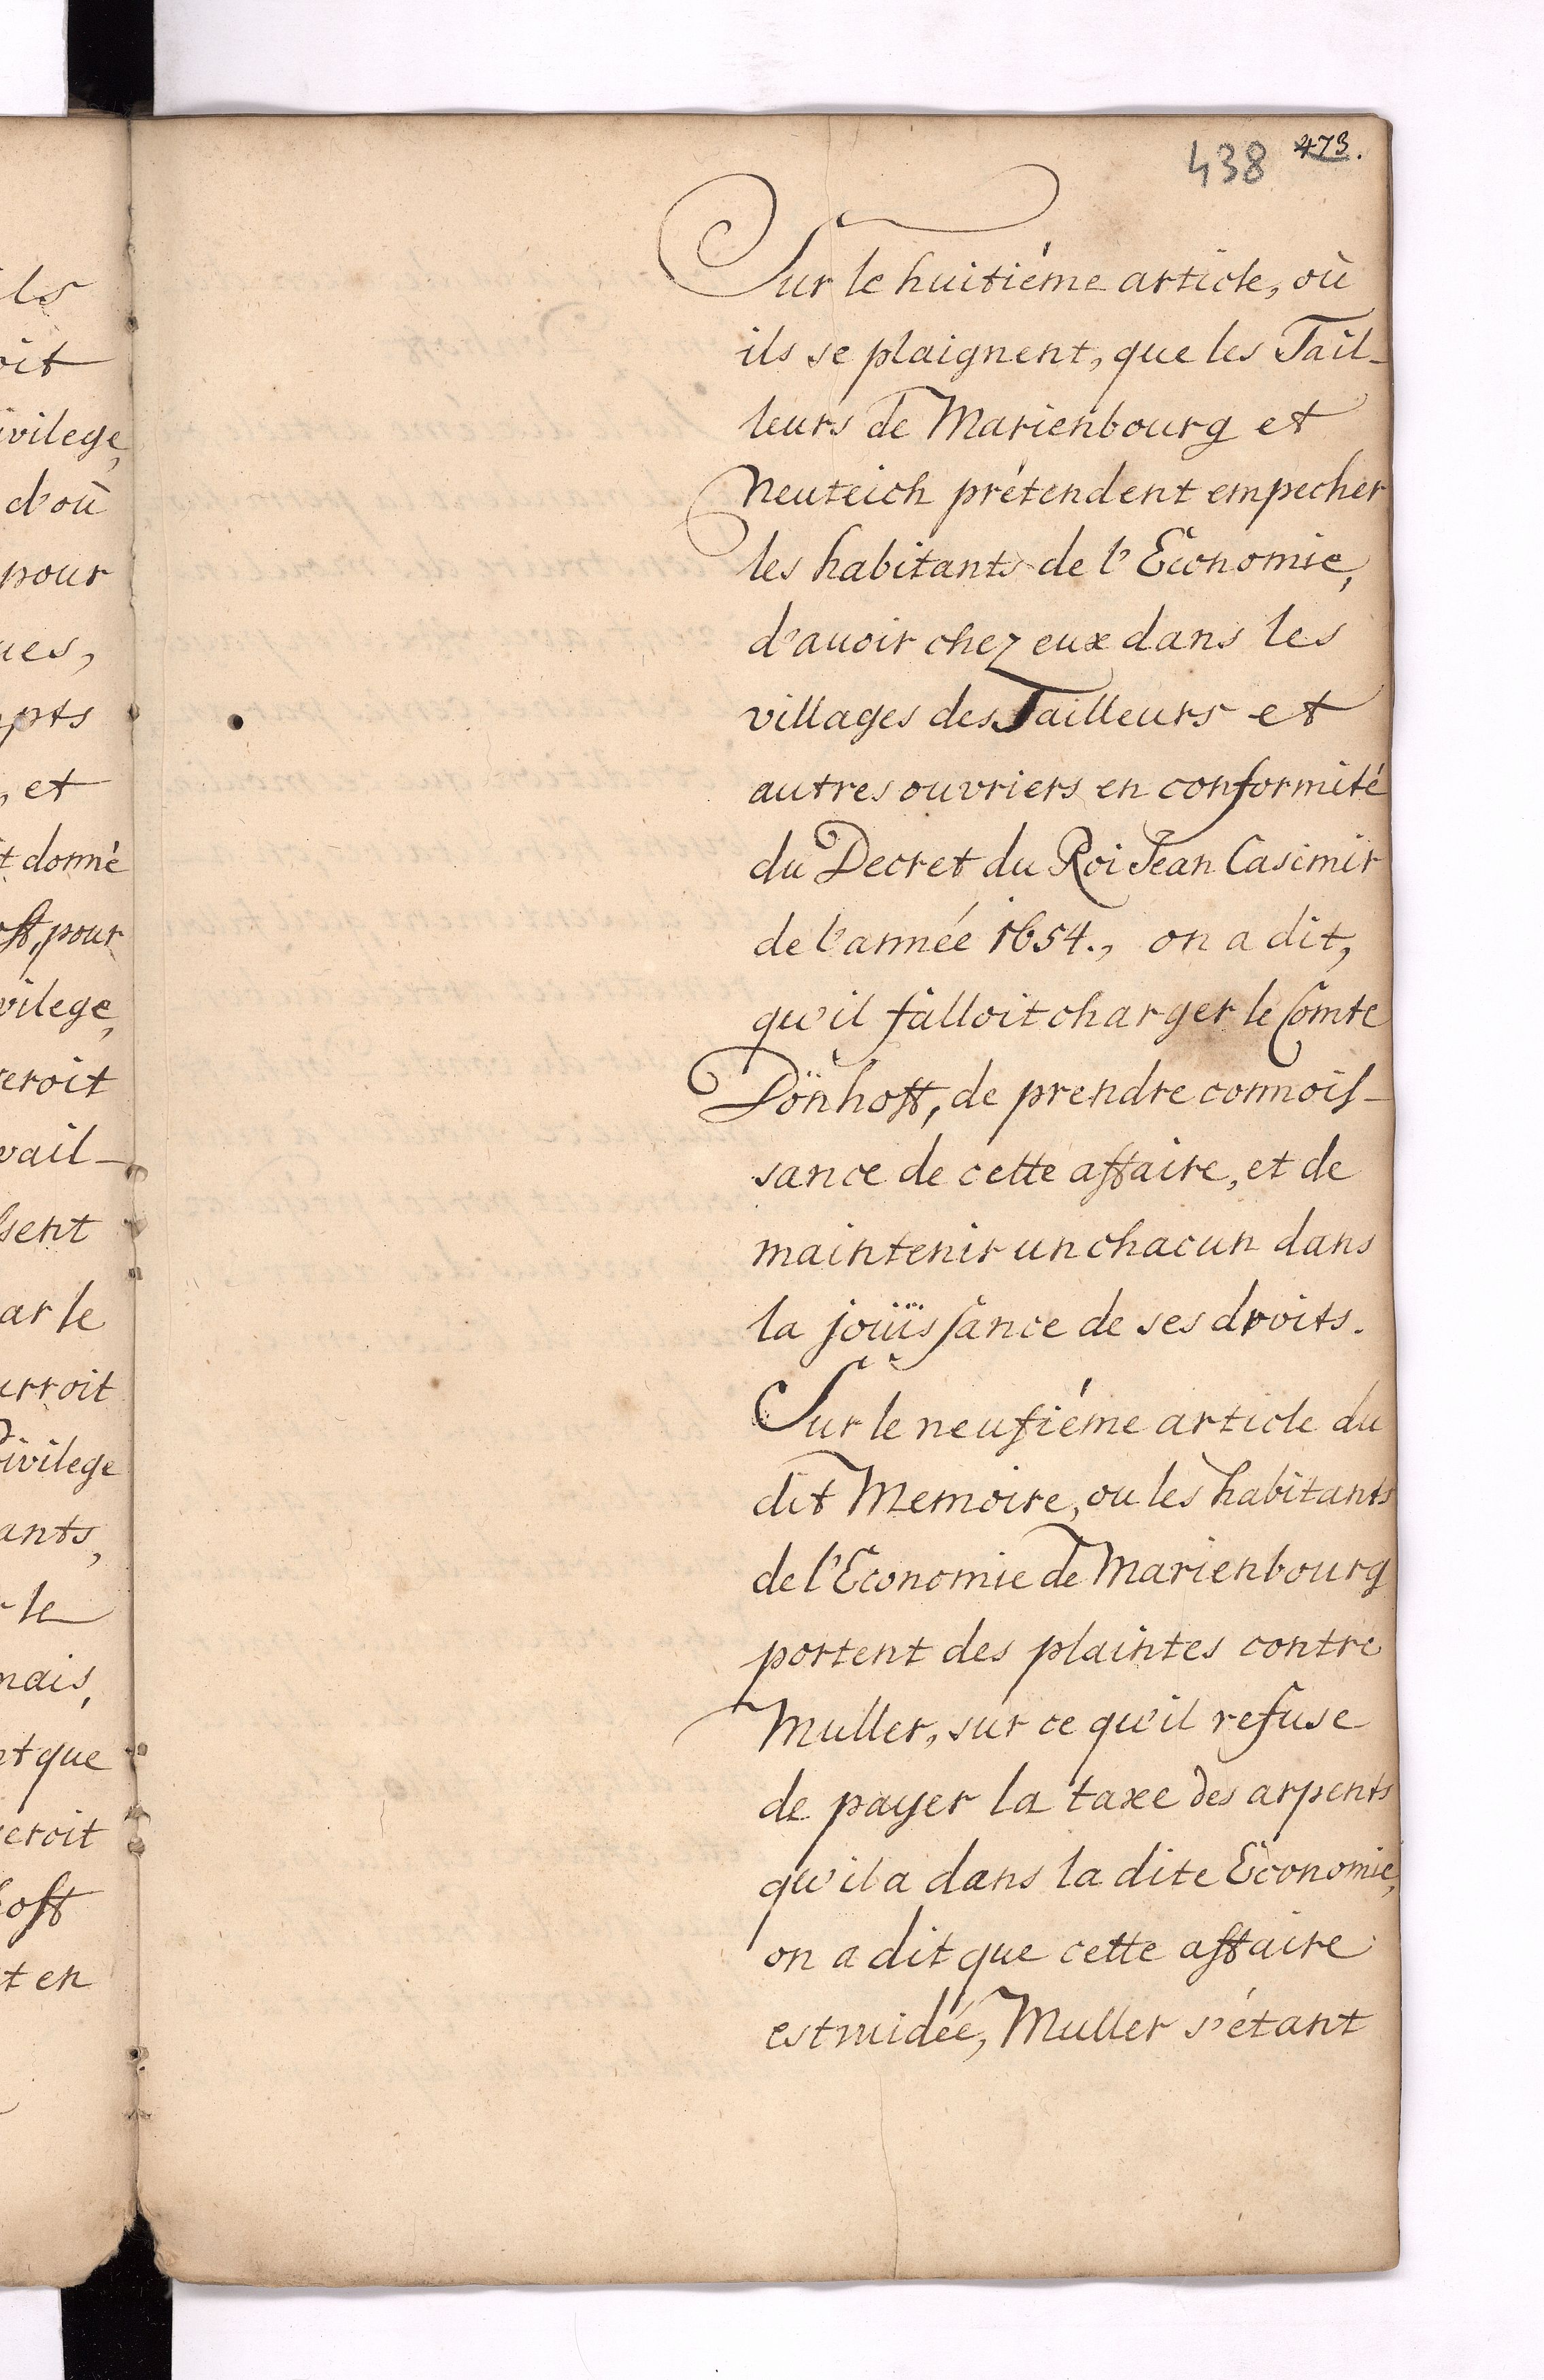 ls
oit
ivilege,
d'où
pour
ues,
pts
, et
t donné
ff, pour
vilege,
eroit
vail-
ssent
ar le
urroit
rivilege
ants,
le
mais,
nt que
eroit
hoff
t en
438 473.
Sur le huitiéme article, où
ils se plaignent, que les Tail-
leurs de Marienbourg et
Neuteich prétendent empecher
les habitants de l'Economie,
d'avoir chez eux dans les
villages des Tailleurs et
autres ouvriers en conformité
du Decret du Roi Jean Casimir
de l'année 1654., on a dit,
qu'il falloit charger le Comte
Dönhoff, de prendre connois-
sance de cette affaire, et de
maintenir un chacun dans
la joüissance de ses droits.
Sur le neufiéme article du
dit Memoire, ou les habitants
de l'Economie de Marienbourg
portent des plaintes contre
Muller, sur ce qu'il refuse
de payer la taxe des arpents
qu'il a dans la dite Economie,
on a dit que cette affaire
est vuidée, Muller s'étant